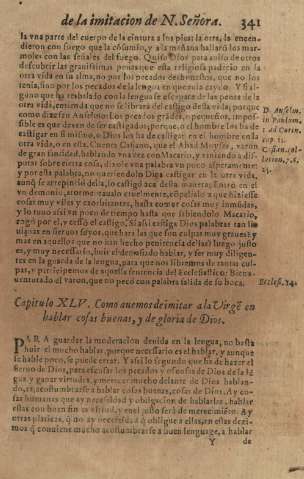 de la imitacion de N. Señora. 341
la vna parte del cuerpo de la cintura a los pies: la otra, la encen-
dieron con fuego que la cōsumio, y a la mañana hallarō los mar-
moles con las señales del fuego. Quiso Dios para auiso de otros
descubrir las grauissimas penas que esta religiosa padecio en la
otra vida en su alma, no por los pecados deshonestos, que no los
tenia, sino por los pecados de la lengua en que auia caydo. Y si al-
guno que ha resbalado con la lengua se escapare de las penas de la
otra vida, entienda que no se librara del castigo desta vida, porque
como dize san Anselmo: Los pecados grādes, o pequeños, impos-
sible es que dexen de ser castigados; porque, o el hombre los ha de
castigar en si mismo, o Dios los ha de castigar en el hombre en la
otra vida, o en esta. Cuenta Casiano, que el Abad Moyses, varon
de gran santidad, hablando vna vez con Macario, y teniendo a dis-
putar sobre cierta cosa, dixole vna palabra vn poco asperamente:
y por esta palabra, no queriendolo Dios castigar en la otra vida,
aunq̄ se arrepintio della, lo castigò acà desta manera: Entrò en el
vn demonio, atormentandolo cruelmente, cōpeliale a que hiziesse
cosas muy viles y exorbitantes, hasta comer cosas muy inmundas,
y lo tuuo assi vn poco de tiempo hasta que sabiendolo Macario,
rogò por el, y cessò el castigo. Si assi castiga Dios palabras tan li-
uianas en sus sieruos, que harà las que son culpas muy graues? y
mas en aquellos que no han hecho penitencia dellas? luego justo
es, y muy necessario, huir el demasiado hablar, y ser muy diligen-
tes en la guarda de la lengua, para que nos libremos de tantas cul-
pas, y participemos de aquella sentencia del Ecclesiastico: Biena-
uenturado el varon, que no pecò con palabra salida de su boca.
D. Anselm.
in Psalm.
Eccles. 14.
Capitulo XLV. Como auemos de imitar a la Virgē en
hablar cosas buenas, y de gloria de Dios.
PARA guardar la moderacion deuida en la lengua, no basta
huir el mucho hablar, porque necessario es el hablar, y aunque
se hable poco, se puede errar. Y assi lo segundo que ha de hazer el
sieruo de Dios, para escusar los pecados y ofensas de Dios de la lē-
gua, y ganar virtudes, y merecer mucho delante de Dios hablan-
do, es, acostumbrarse a hablar cosas buenas, cosas de Dios. Ay co-
sas humanas que ay necessidad y obligacion de hablarlas, hablar
estas con buen fin es virtud, y en el justo serà de merecimiēto. Ay
otras platicas, q̄ no ay necessidad, ni q̄ obligue a ellas, en estas dezi-
mos q̄ conuiene mucho acostumbrarse a buen lenguage, a hablar
Y de